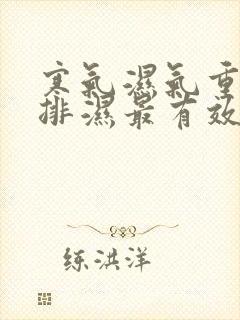 寒氣濕氣重
排濕最有效
练洪洋